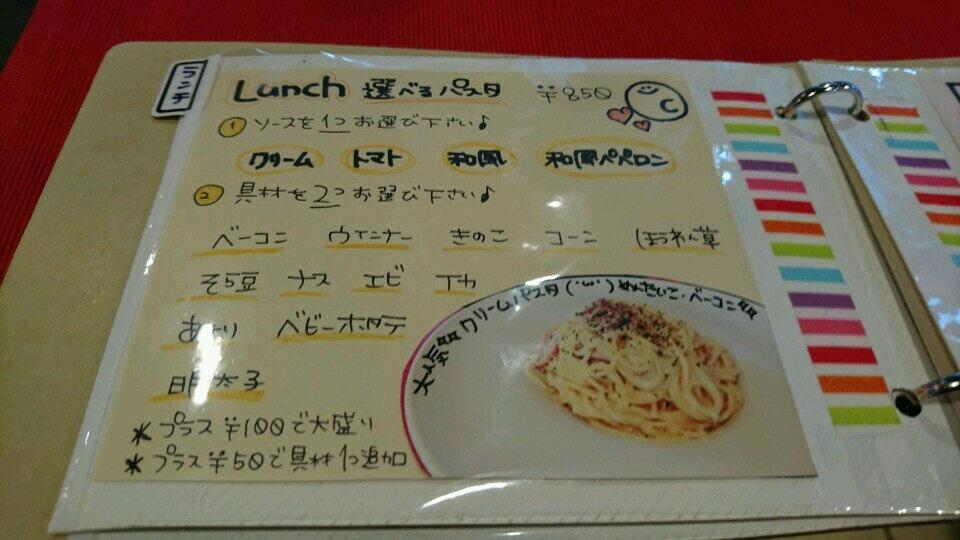 ランチ
Lunch 選べるパスタ ¥850
① ソースを1つお選び下さい♪
クリーム トマト 和風 和風ペペロン
② 具材を2つお選び下さい♪
ベーコン ウインナー きのこ コーン ほうれん草
そら豆 ナス エビ イカ
あさり ベビーホタテ
明太子
大人気 クリームパスタ(･ω･)めんたいこ・ベーコン
＊プラス¥100で大盛り
＊プラス¥50で具材1つ追加